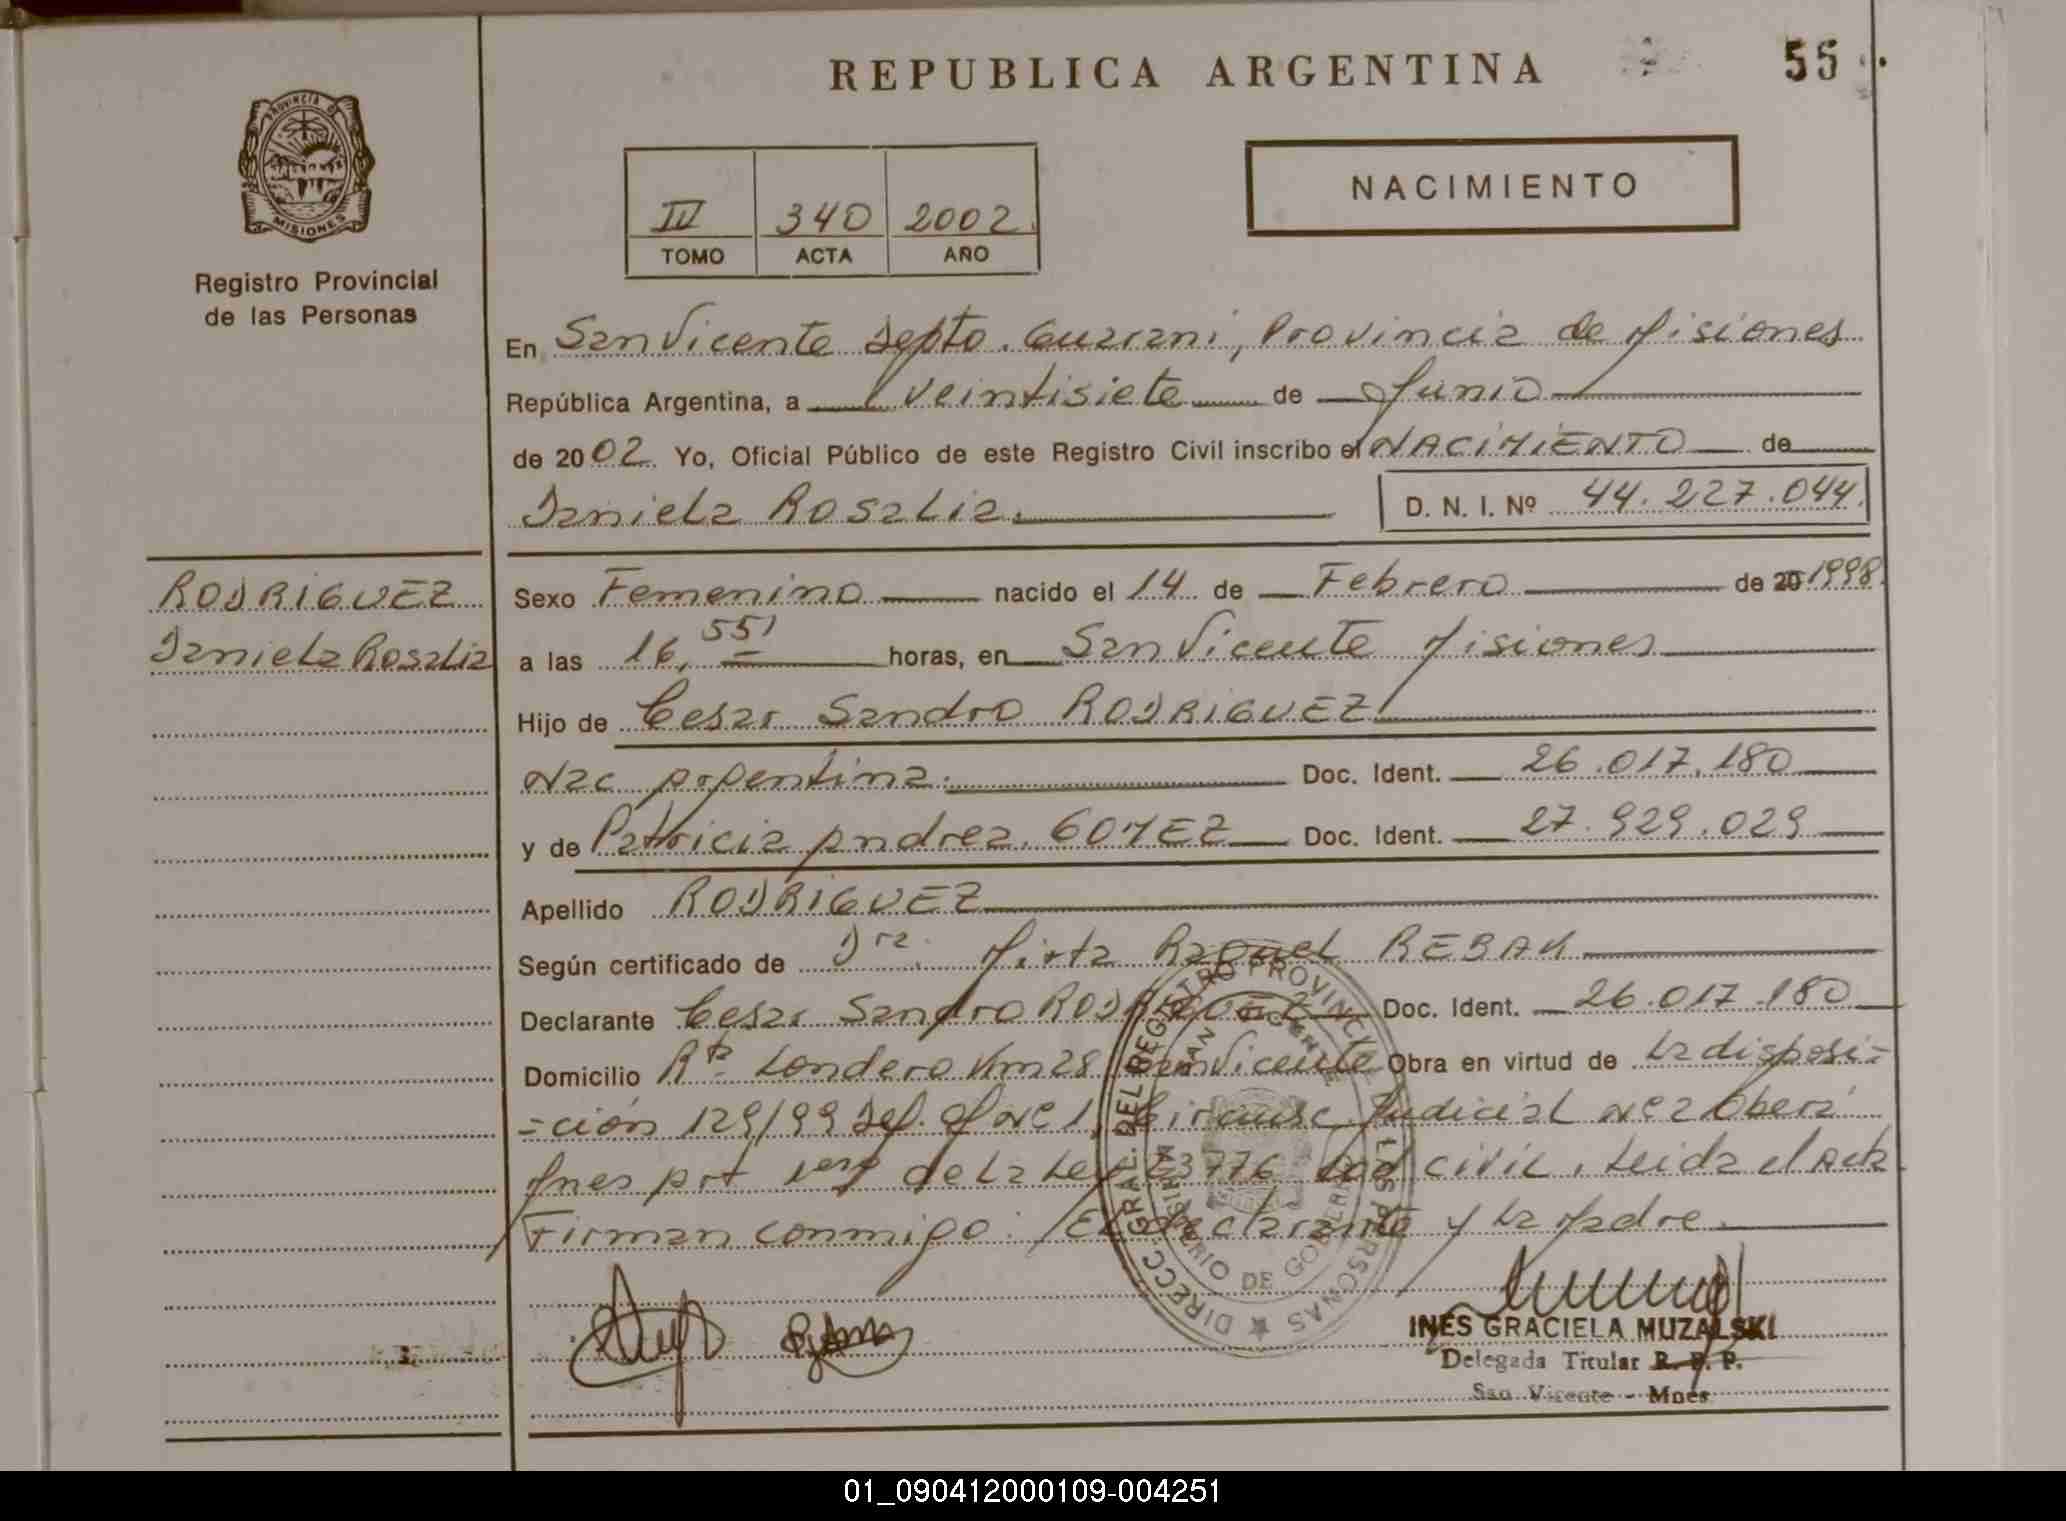 REPUBLICA ARGENTINA
55
PROVINCIA DE
MISIONES
Registro Provincial
de las Personas
NACIMIENTO
IV 340 2002
TOMO ACTA AÑO
En San Vicente Depto. Guarani, Provincia de Misiones
República Argentina, a Veintisiete de Junio
de 2002. Yo, Oficial Público de este Registro Civil inscribo el NACIMIENTO de
Daniela Rosalia.
D. N. I. Nº 44.227.044.
RODRIGUEZ
Daniela Rosalia
Sexo Femenino nacido el 14 de Febrero de 20 1998.
a las 16,55' horas, en San Vicente Misiones
Hijo de Cesar Sandro RODRIGUEZ
Nac Argentina. Doc. Ident. 26.017.180
y de Patricia Andrea. GOMEZ Doc. Ident. 27.929.029
Apellido RODRIGUEZ
Según certificado de Dra. Mirta Raquel REBAK
Declarante Cesar Sandro RODRIGUEZ Doc. Ident. 26.017.180
Domicilio Londero Km 28 San Vicente Obra en virtud de la disposi=
=ción 129/99 Def. Of Nº 1, Circunsc. Judicial Nº 2 Oberá
Mnes Art 1º y de la Ley 23776 Cod civil. Leida el Acta
Firman conmigo: El declarante y la Madre.
DIRECC. GRAL. DEL REGISTRO PROVINCIAL DE LAS PERSONAS
SAN VICENTE
MINISTERIO DE GOBIERNO
INES GRACIELA MUZALSKI
Delegada Titular R. P. P.
San Vicente - Mnes
01_090412000109-004251